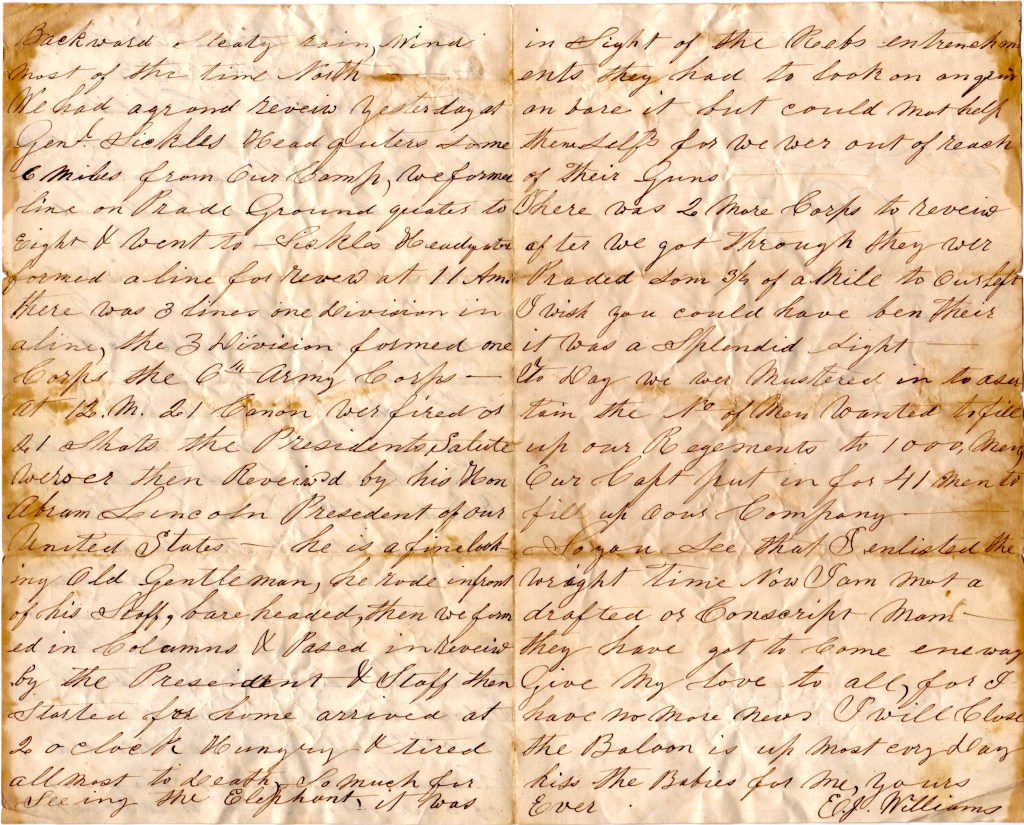 Backward Sleaty rain, Wind
most of the time North
We had a grand reveiw yesterday at
Genl. Sickles Head quters some
6 Miles from Our Camp, we formed
line on Prade Ground quater to
Eight & went to Sickles Headquters
formed a line for reveiw at 11 Am.
there was 3 lines one Division in
a line, the 3 Division formed one
Corps the 6th Army Corps —
at 12. M. 21 Canon wer fired or
21 Shots the Presidents Salute
we wer then Reveiwd by his Hon
Abram Lincoln Presedent of our
United States — he is a fine look
ing Old Gentleman, he rode in front
of his Staff, bare headed, then we form
ed in Columns & Pased in reveiw
by the President & Staff then
Started for home arrived at
2 o clock Hungry & tired
all most to Death, So much for
Seeing the Elephant, it was
in Sight of the Rebs entrenchm
ents they had to look on an grin
an bare it but could not help
themselfs for we wer out of reach
of Their Guns
There was 2 More Corps to reveiw
after we got through they wer
Praded som 3/4 of a Mill to Our left
I wish you could have ben Their
it was a Splendid Sight —
To Day we wer Mustered in to aser
tain the No of Men Wanted to fill
up our Regements to 1000, Men,
Our Capt put in for 41 Men to
fill up our Company —
So you See that I enlisted the
wright time Now I am not a
drafted or Conscript Man —
they have got to Come eneway
Give My love to all, for I
have no more news I will Close
the Baloon is up most evry Day
kiss the Babies for me, yours
Ever E.J. Williams